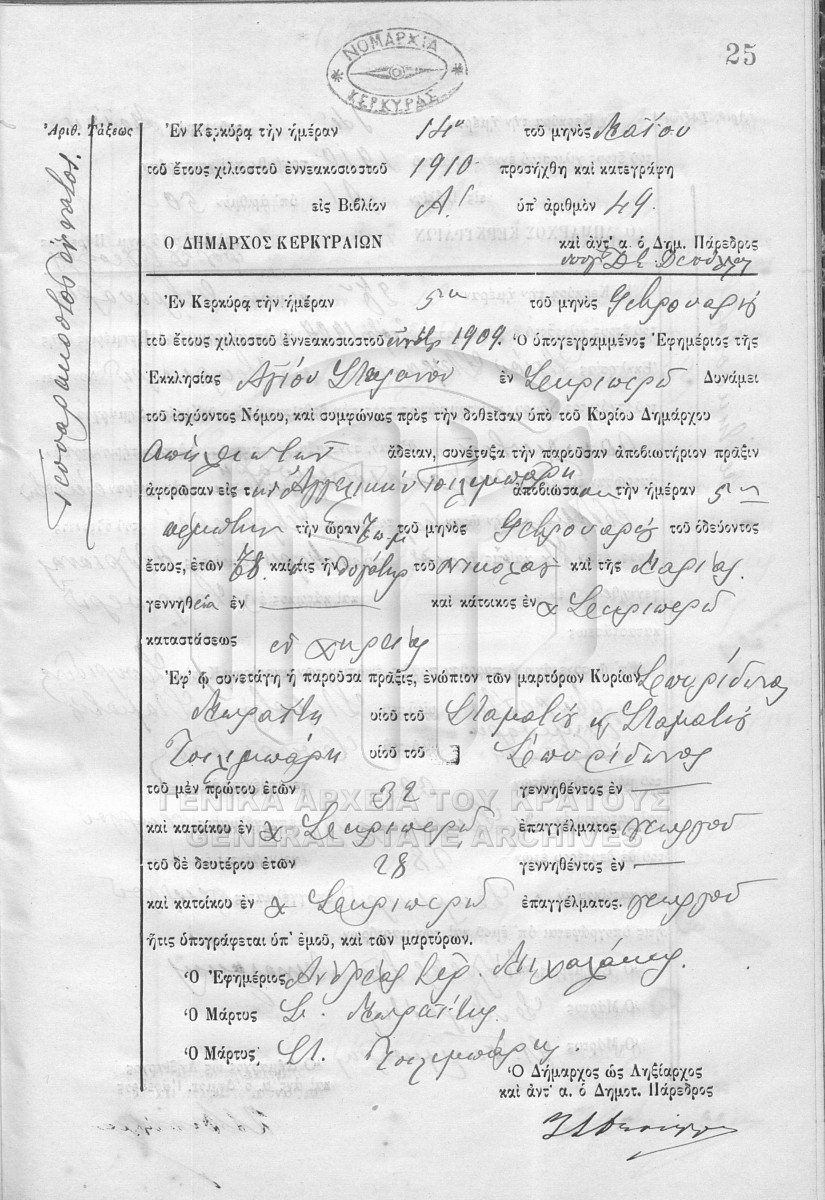 25
ΝΟΜΑΡΧΙΑ
ΚΕΡΚΥΡΑΣ
Ἀριθ. Τάξεως
Τεσσαρακοστός ἔννατος.
Ἐν Κερκύρᾳ τὴν ἡμέραν 14η τοῦ μηνὸς Μαΐου
τοῦ ἔτους χιλιοστοῦ ἐννεακοσιοστοῦ 1910 προσήχθη καὶ κατεγράφη
εἰς Βιβλίον Α! ὑπ' ἀριθμὸν 49.
Ο ΔΗΜΑΡΧΟΣ ΚΕΡΚΥΡΑΙΩΝ καὶ ἀντ' α. ὁ Δημ. Πάρεδρος
Ἐν Κερκύρᾳ τὴν ἡμέραν 5ην τοῦ μηνὸς Φεβρουαρίου
τοῦ ἔτους χιλιοστοῦ ἐννεακοσιοστοῦ ἐννάτου 1909. Ὁ ὑπογεγραμμένος Ἐφημέριος τῆς
Ἐκκλησίας Ἁγίου Στεφάνου ἐν Σκριπερῷ Δυνάμει
τοῦ ἰσχύοντος Νόμου, καὶ συμφώνως πρὸς τὴν δοθεῖσαν ὑπὸ τοῦ Κυρίου Δημάρχου
ἄδειαν, συνέταξα τὴν παροῦσαν ἀποβιωτήριον πρᾶξιν
ἀφορῶσαν εἰς τὴν Ἀγγελικὴν Τσιλιμπάρη ἀποβιώσασαν τὴν ἡμέραν 5ην
πέμπτην τὴν ὥραν 7 π.μ τοῦ μηνὸς Φεβρουαρίου τοῦ ὁδεύοντος
ἔτους, ἐτῶν 78 καὶ τις ἦν θυγάτηρ τοῦ Νικολάου καὶ τῆς Μαρίας.
γεννηθεῖσα ἐν — καὶ κάτοικος ἐν χ Σκριπερῷ
καταστάσεως ἐν χηρείᾳ
Ἐφ' ᾧ συνετάγη ἡ παροῦσα πρᾶξις, ἐνώπιον τῶν μαρτύρων Κυρίων Σπυρίδωνος
Μωραΐτη υἱοῦ τοῦ Σταματίου κ Σταματίου
Τσιλιμπάρη υἱοῦ τοῦ Σπυρίδωνος
τοῦ μὲν πρώτου ἐτῶν 32 γεννηθέντος ἐν —
ΓΕΝΙΚΑ ΑΡΧΕΙΑ ΤΟΥ ΚΡΑΤΟΥΣ
καὶ κατοίκου ἐν χ Σκριπερῷ ἐπαγγέλματος γεωργοῦ
GENERAL STATE ARCHIVES
τοῦ δὲ δευτέρου ἐτῶν 28 γεννηθέντος ἐν —
καὶ κατοίκου ἐν χ Σκριπερῷ ἐπαγγέλματος. γεωργοῦ
ἥτις ὑπογράφεται ὑπ' ἐμοῦ, καὶ τῶν μαρτύρων.
Ὁ Ἐφημέριος Ἀνδρέας Ἱερ. Μιχαλάκης.
Ὁ Μάρτυς Σ. Μωραΐτης.
Ὁ Μάρτυς Στ. Τσιλιμπάρης.
Ὁ Δήμαρχος ὡς Ληξίαρχος
καὶ ἀντ' α. ὁ Δημοτ. Πάρεδρος